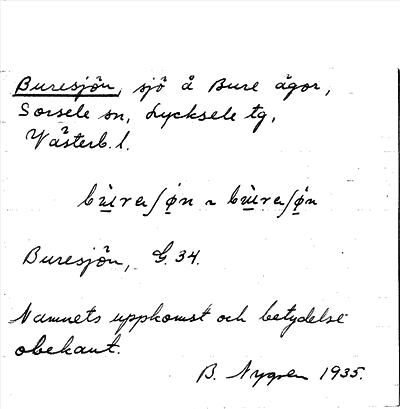 Buresjön, sjö å Bure ägor,
Sorsele sn, Lycksele tg,
Västerb. l.
Buresjön, G. 34.
Namnets uppkomst och betydelse
obekant.
B. Nygren 1935.